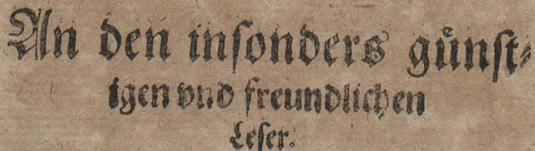 An den inſonders guͤnſt⸗
igen vnd freundlichen
Leſer.